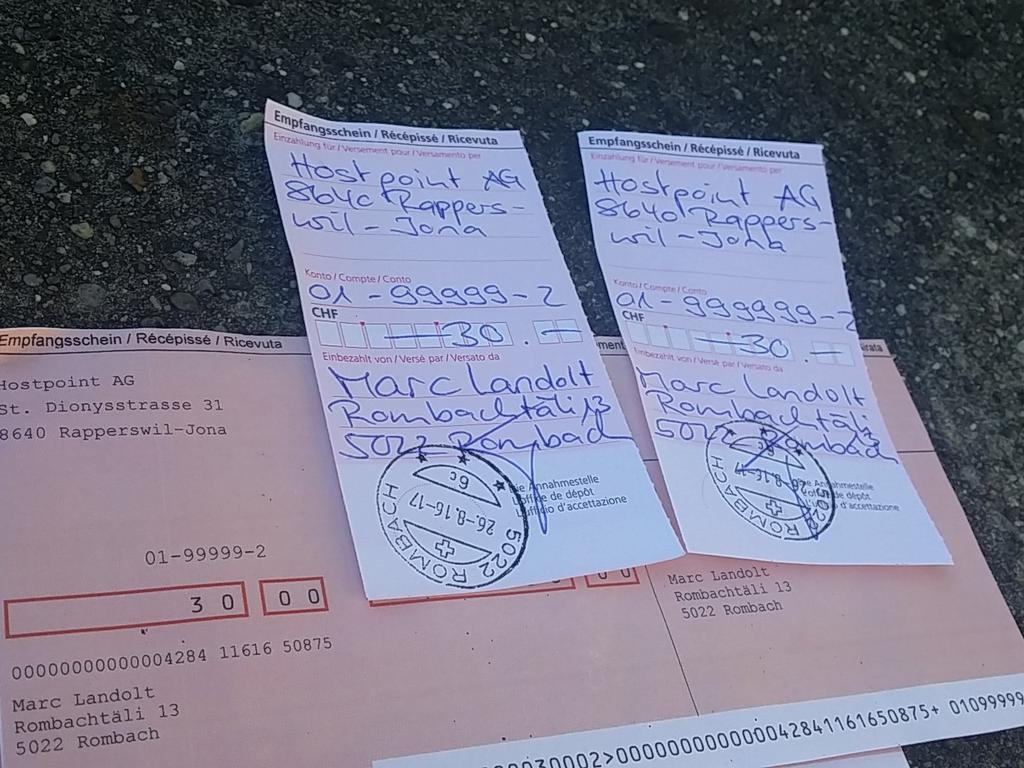 Empfangsschein / Récépissé / Ricevuta
Einzahlung für / Versement pour / Versamento per
Hostpoint AG
8640 Rappers-
wil-Jona
Konto / Compte / Conto
01-99999-2
CHF
30.—
Einbezahlt von / Versé par / Versato da
Marc Landolt
Rombachtäli 13
5022 Rombach
Die Annahmestelle
L'office de dépôt
L'ufficio d'accettazione
5022 ROMBACH
26.-8.16-17
6c
Empfangsschein / Récépissé / Ricevuta
Einzahlung für / Versement pour / Versamento per
Hostpoint AG
8640 Rappers-
wil-Jona
Konto / Compte / Conto
01-999999-2
CHF
30.—
Einbezahlt von / Versé par / Versato da
Marc Landolt
Rombachtäli
5022 Rombach
Die Annahmestelle
L'office de dépôt
L'ufficio d'accettazione
5022 ROMBACH
6c
Empfangsschein / Récépissé / Ricevuta
Hostpoint AG
St. Dionysstrasse 31
8640 Rapperswil-Jona
01-99999-2
30 00
00000000000004284 11616 50875
Marc Landolt
Rombachtäli 13
5022 Rombach
00
Marc Landolt
Rombachtäli 13
5022 Rombach
00030002>000000000000042841161650875+ 01099999